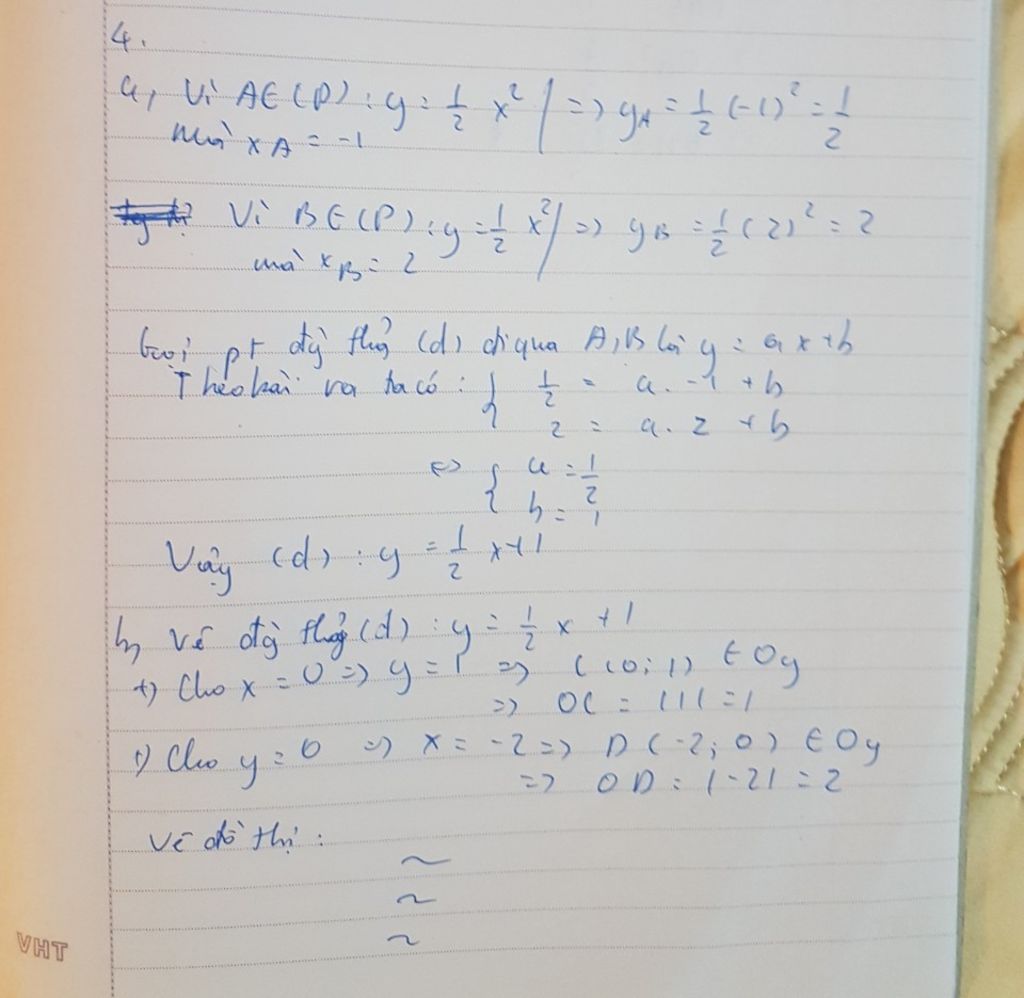 4.
a, Vì A∈(P): y = 1/2 x² | => yA = 1/2 (-1)² = 1/2
mà xA = -1
Vì B∈(P): y = 1/2 x² | => yB = 1/2 (2)² = 2
mà xB = 2
Gọi pt (d) đi qua A, B là y = ax+b
Theo bài ra ta có: { 1/2 = a. -1 + b
2 = a. 2 + b
<=> { a = 1/2
b = 1
Vậy (d): y = 1/2 x+1
b, Vẽ (d): y = 1/2 x + 1
+) Cho x = 0 => y = 1 => C(0; 1) ∈ Oy
=> OC = |1| = 1
+) Cho y = 0 => x = -2 => D(-2; 0) ∈ Oy
=> OD = |-2| = 2
Vẽ đồ thị:
~
~
~
VHT